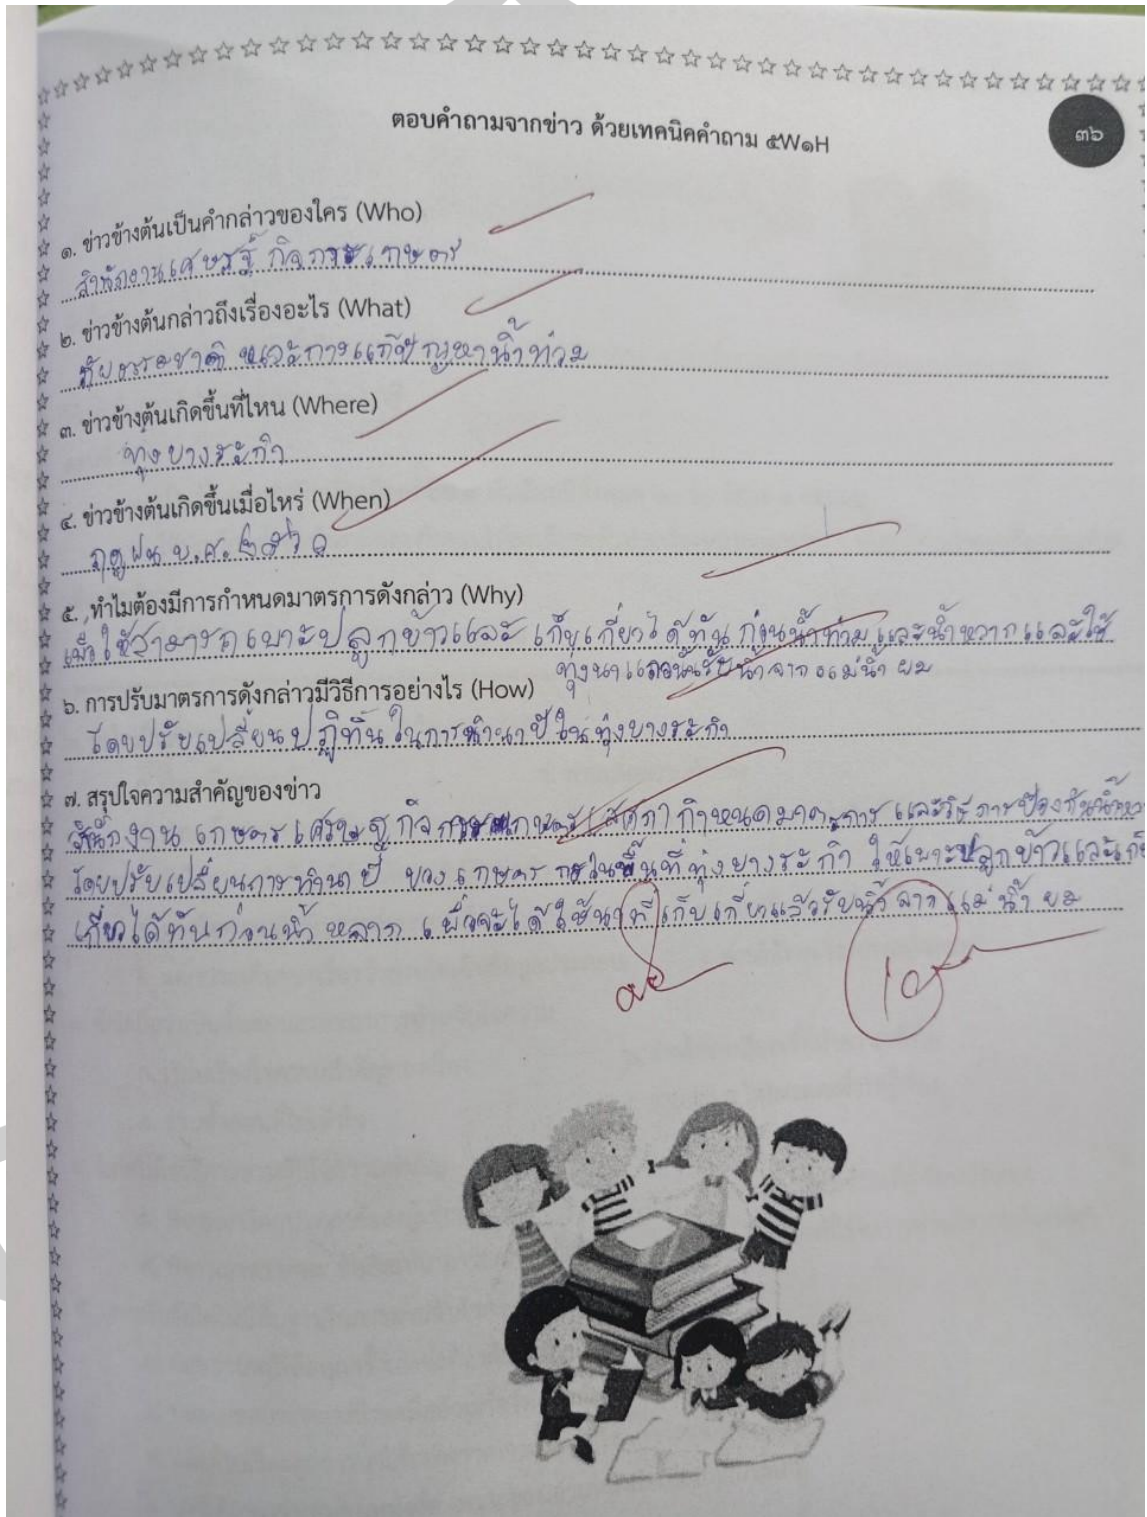 ตอบคำถามจากข่าว ด้วยเทคนิคคำถาม ๕W๑H
๓๖
๑. ข่าวข้างต้นเป็นคำกล่าวของใคร (Who)
สำนักงานเศรษฐกิจการเกษตร
๒. ข่าวข้างต้นกล่าวถึงเรื่องอะไร (What)
ภัยธรรมชาติ และการแก้ปัญหาน้ำท่วม
๓. ข่าวข้างต้นเกิดขึ้นที่ไหน (Where)
ทุ่งบางระกำ
๔. ข่าวข้างต้นเกิดขึ้นเมื่อไหร่ (When)
ฤดูฝน พ.ศ.
๕. ทำไมต้องมีการกำหนดมาตรการดังกล่าว (Why)
เพื่อให้สามารถเพาะปลูกข้าวและ เก็บเกี่ยวได้ทัน ก่อนน้ำท่วม และน้ำหลาก และใช้
ทุ่งนา รับน้ำจากแม่น้ำ ยม
๖. การปรับมาตรการดังกล่าวมีวิธีการอย่างไร (How)
โดยปรับเปลี่ยนปฏิทินในการทำนาปีในทุ่งบางระกำ
๗. สรุปใจความสำคัญของข่าว
สำนักงาน เกษตร เศรษฐกิจ กำหนดมาตรการ และวิธีการป้องกัน
โดยปรับเปลี่ยนการทำนาปี ของเกษตร ในพื้นที่ทุ่งบางระกำ ให้เพาะปลูกข้าวและเก็บ
เกี่ยวได้ทันก่อนน้ำ หลาก เพื่อจะได้ใช้นาที่เก็บเกี่ยวแล้วรับน้ำจากแม่น้ำ ยม